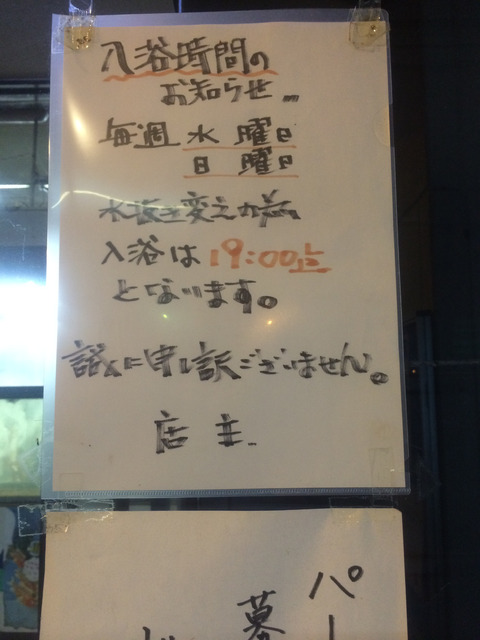 入浴時間の
お知らせ
毎週 水曜日
日曜日
水抜き変えの為
入浴は19:00迄
となります。
誠に申し訳ございません。
店主
パー
募